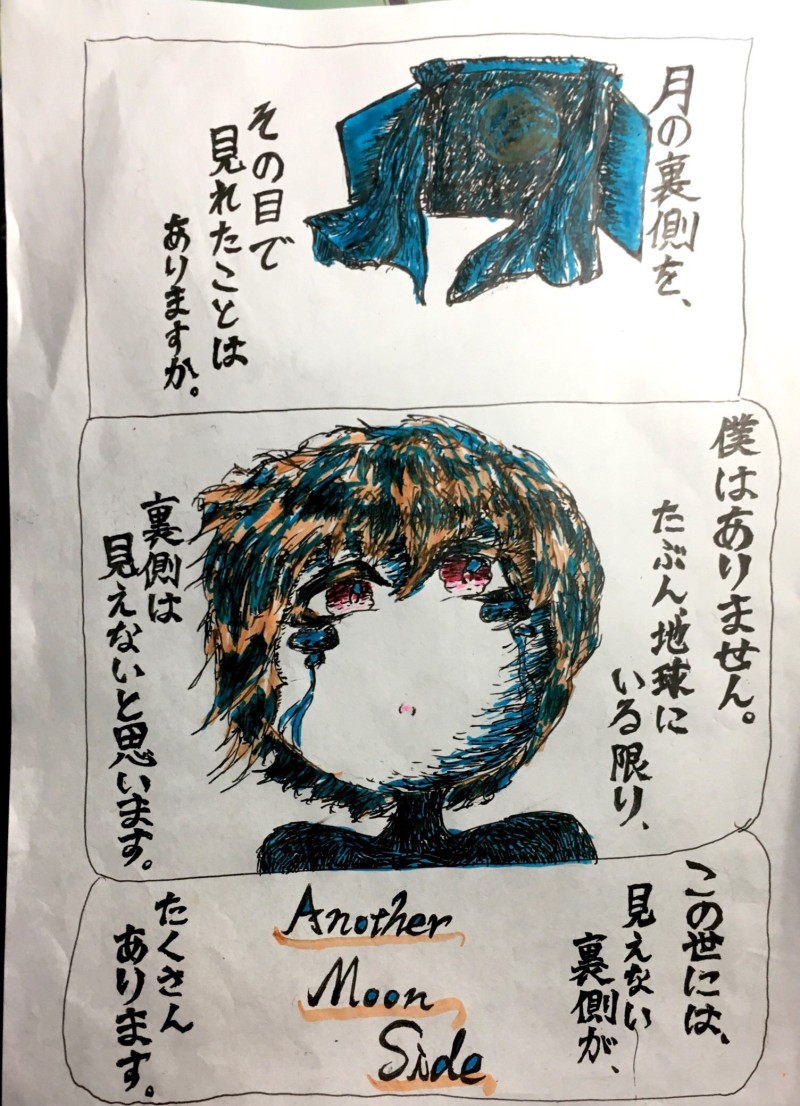 月の裏側を、
その目で
見れたことは
ありますか。
僕はありません。
たぶん、地球に
いる限り、
裏側は
見えないと思います。
この世には、
見えない
裏側が、
Another
Moon
Side
たくさん
あります。